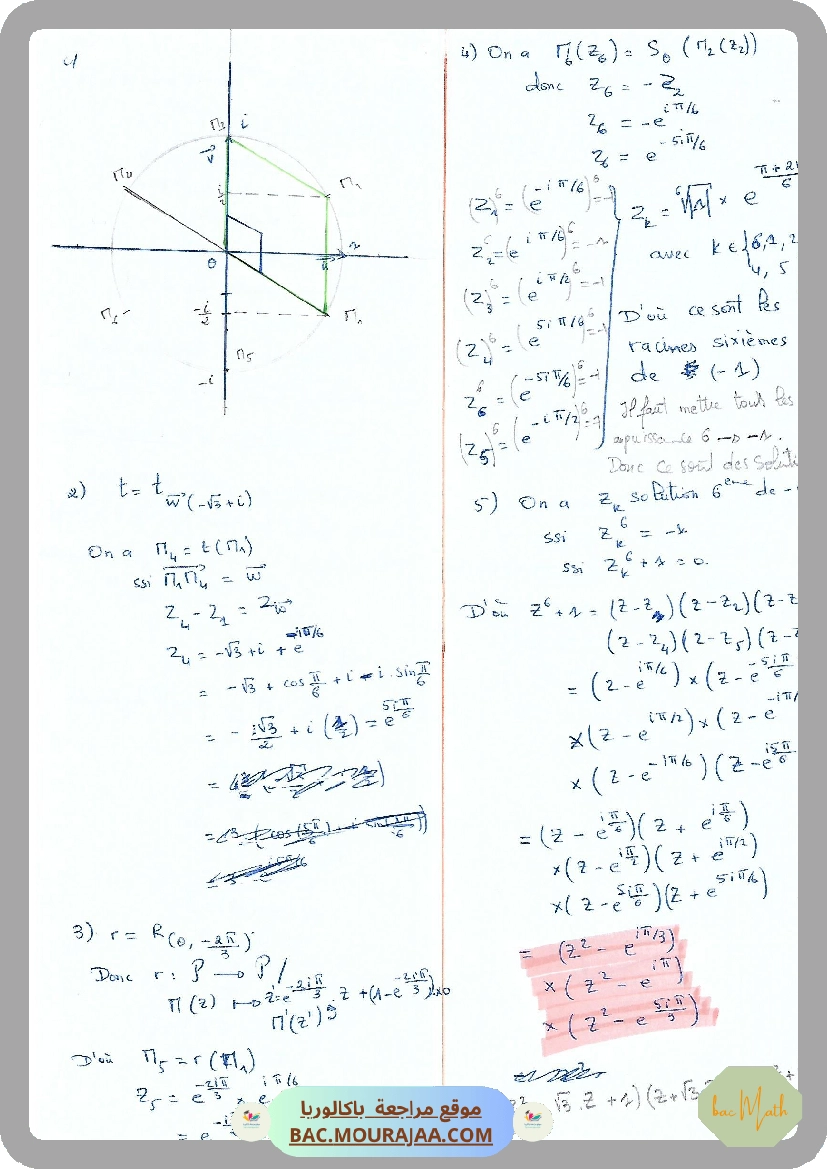 M3
i
v
M2
i/2
M4
0
u
-i/2
M1
M6
M5
-i
2) t = t w(-√3+i)
On a M4 = t(M1)
ssi M1M4 = w
Z4 - Z1 = Zw
Z4 = -√3 + i + e^(-iπ/6)
= -√3 + cos π/6 + i - i.sin π/6
= - i√3/2 + i (1/2) = e^(5iπ/6)
3) r = R(0, -2π/3)
Donc r : P → P /
M(z) ↦ z' = e^(-2iπ/3) z + (1-e^(-2iπ/3))×0
M'(z')
D'où M5 = r(M1)
Z5 = e^(-2iπ/3) × e^(iπ/6)
4) On a M6(Z6) = S0 (M2(Z2))
donc Z6 = - Z2
Z6 = -e^(iπ/6)
Z6 = e^(-5iπ/6)
(Z1)^6 = (e^(-iπ/6))^6 = -1
Z2^6 = (e^(iπ/6))^6 = -1
(Z3)^6 = (e^(iπ/2))^6 = -1
(Z4)^6 = (e^(5iπ/6))^6 = -1
Z6^6 = (e^(-5iπ/6))^6 = -1
(Z5)^6 = (e^(-iπ/2))^6 = -1
avec k ∈ {0,1,2
4, 5
D'où ce sont les
racines sixièmes
de (-1)
Il faut mettre tous les
a puissance 6 → -1.
Donc ce sont des Soluti
5) On a Zk solution 6ème de -
ssi Zk^6 = -1
ssi Zk^6 + 1 = 0.
D'où Z^6 + 1 = (Z-Z1)(Z-Z2)(Z-Z
(Z-Z4)(Z-Z5)(Z-Z
= (Z-e^(iπ/6)) × (Z-e^(-5iπ/6)
×(Z-e^(iπ/2)) × (Z-e^(-iπ/
×(Z-e^(-iπ/6))(Z-e^(i5π/6)
= (Z - e^(iπ/6))(Z + e^(iπ/6))
×(Z-e^(iπ/2))(Z + e^(iπ/2))
×(Z-e^(5iπ/6))(Z+e^(5iπ/6))
= (Z² - e^(iπ/3))
× (Z² - e^(iπ))
× (Z² - e^(5iπ/3))
موقع مراجعة باكالوريا
BAC.MOURAJAA.COM
bac Math